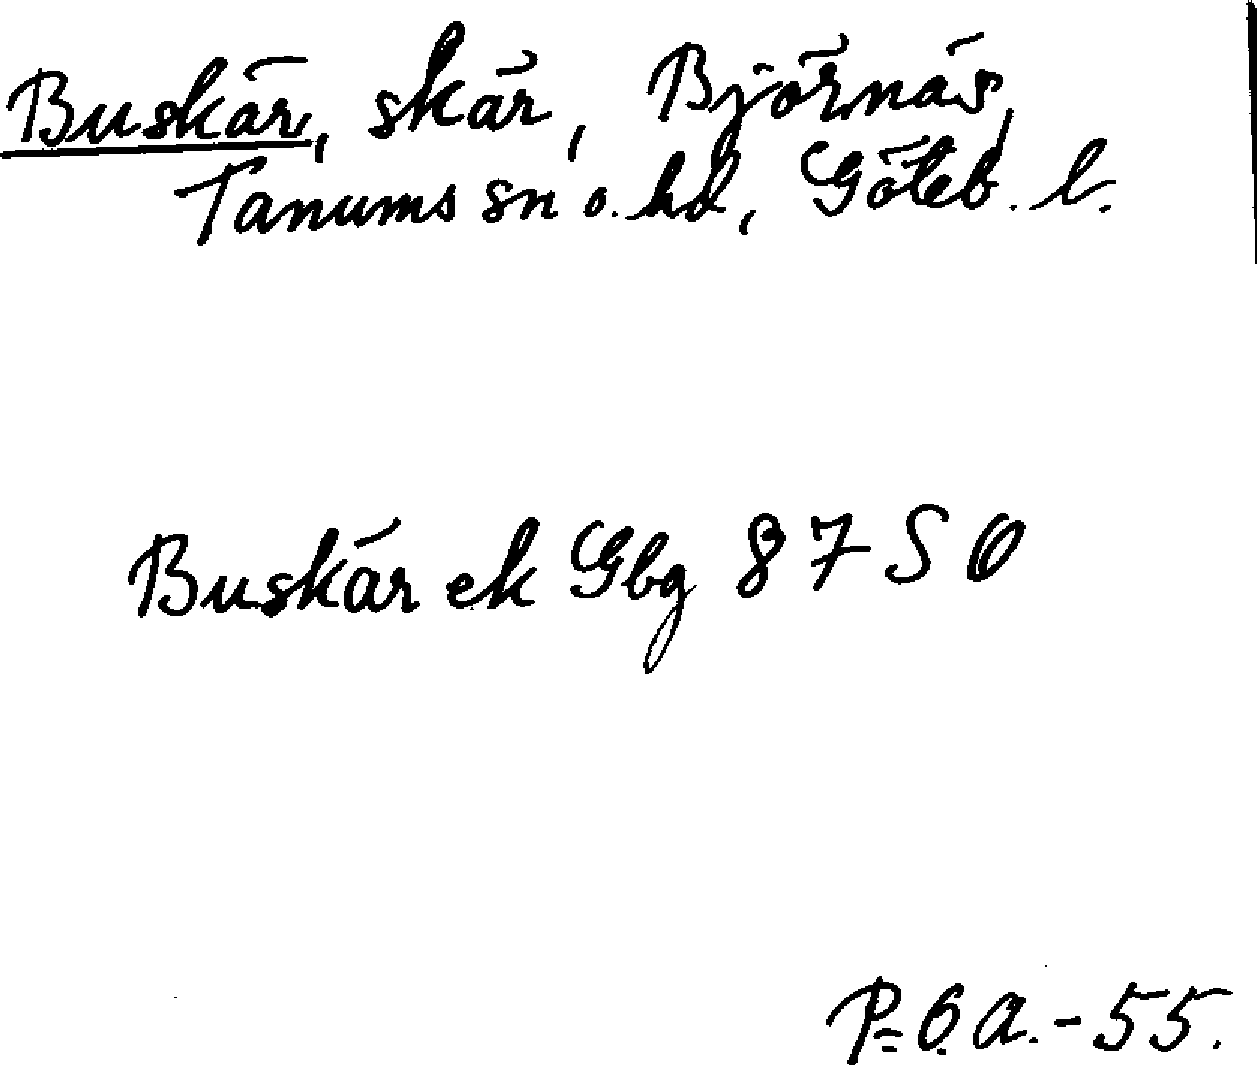 Buskär, skär, Björnäs,
Tanums sn o. hd, Göteb. l.
Buskär ek Gbg 87 SO
P. G A. - 55.